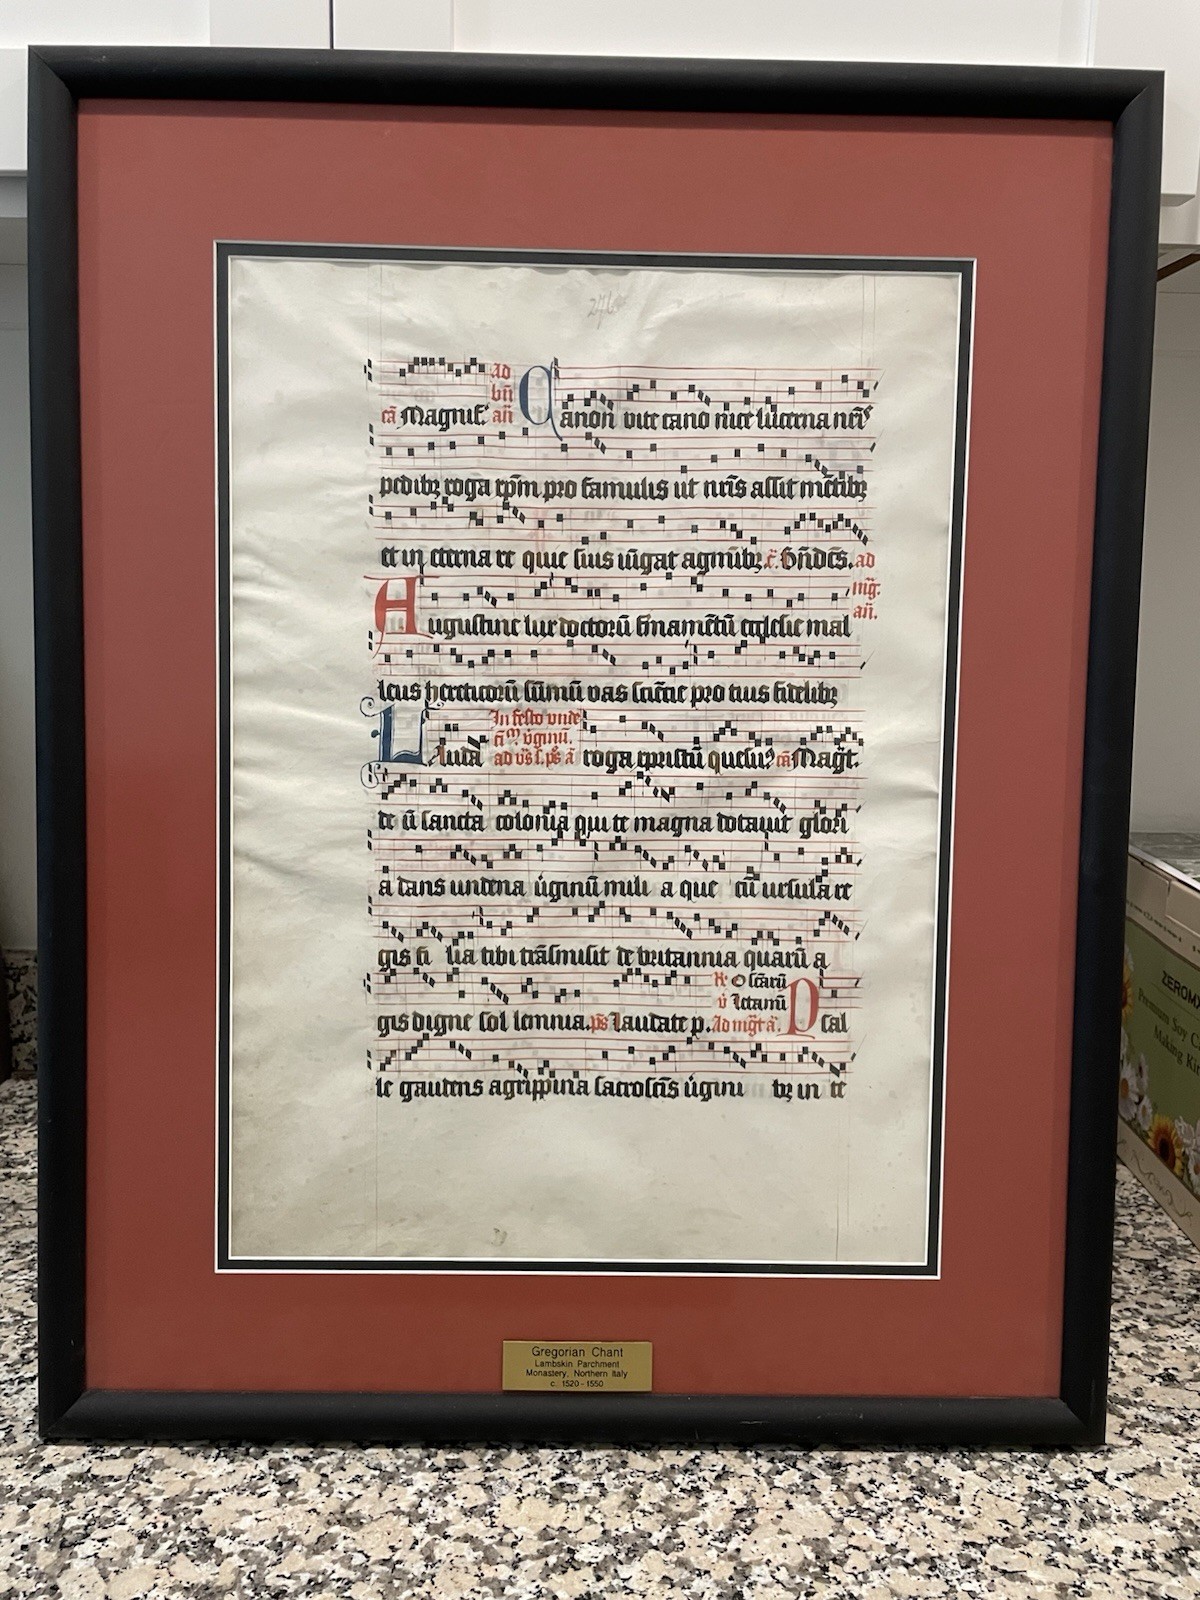 246
ad
bn̄
cā Magnif. an̄ Canon vite cano nice lucerna nr̄is
pedibꝫ roga xp̄m pro famulis ut nr̄is assit mētibꝫ
et in eterna te que suis iūgat agmibꝫ. c̄. Bn̄dc̄s. ad
mg̅.
an̄.
Augustine lux doctorū firmamētū ecclesie mal
leus hereticorū sūmū vas sciētie pro tuis fidelibꝫ
In festo unde
ci᷒ v̓ginū.
Auda ad vs̄ s. ps̄ ā roga cpristū quesu᷒ cā Magt.
te ū sancta colonia qui te magna dotavit glori
a dans undena v̓ginū mili a que cū ursula re
gis fi lia tibi trāsmisit de britannia quarū a
℟ O sc̄arū
v̓ Letamī
gis digne sol lemnia. ps̄ Laudate p. Ad mg̅t ā. Psal
le gaudens agrippina sacrosc̄is v̓gini bꝫ in te
Gregorian Chant
Lambskin Parchment
Monastery, Northern Italy
c. 1520 - 1550
ZEROMA
Premium Soy C
Making Kit